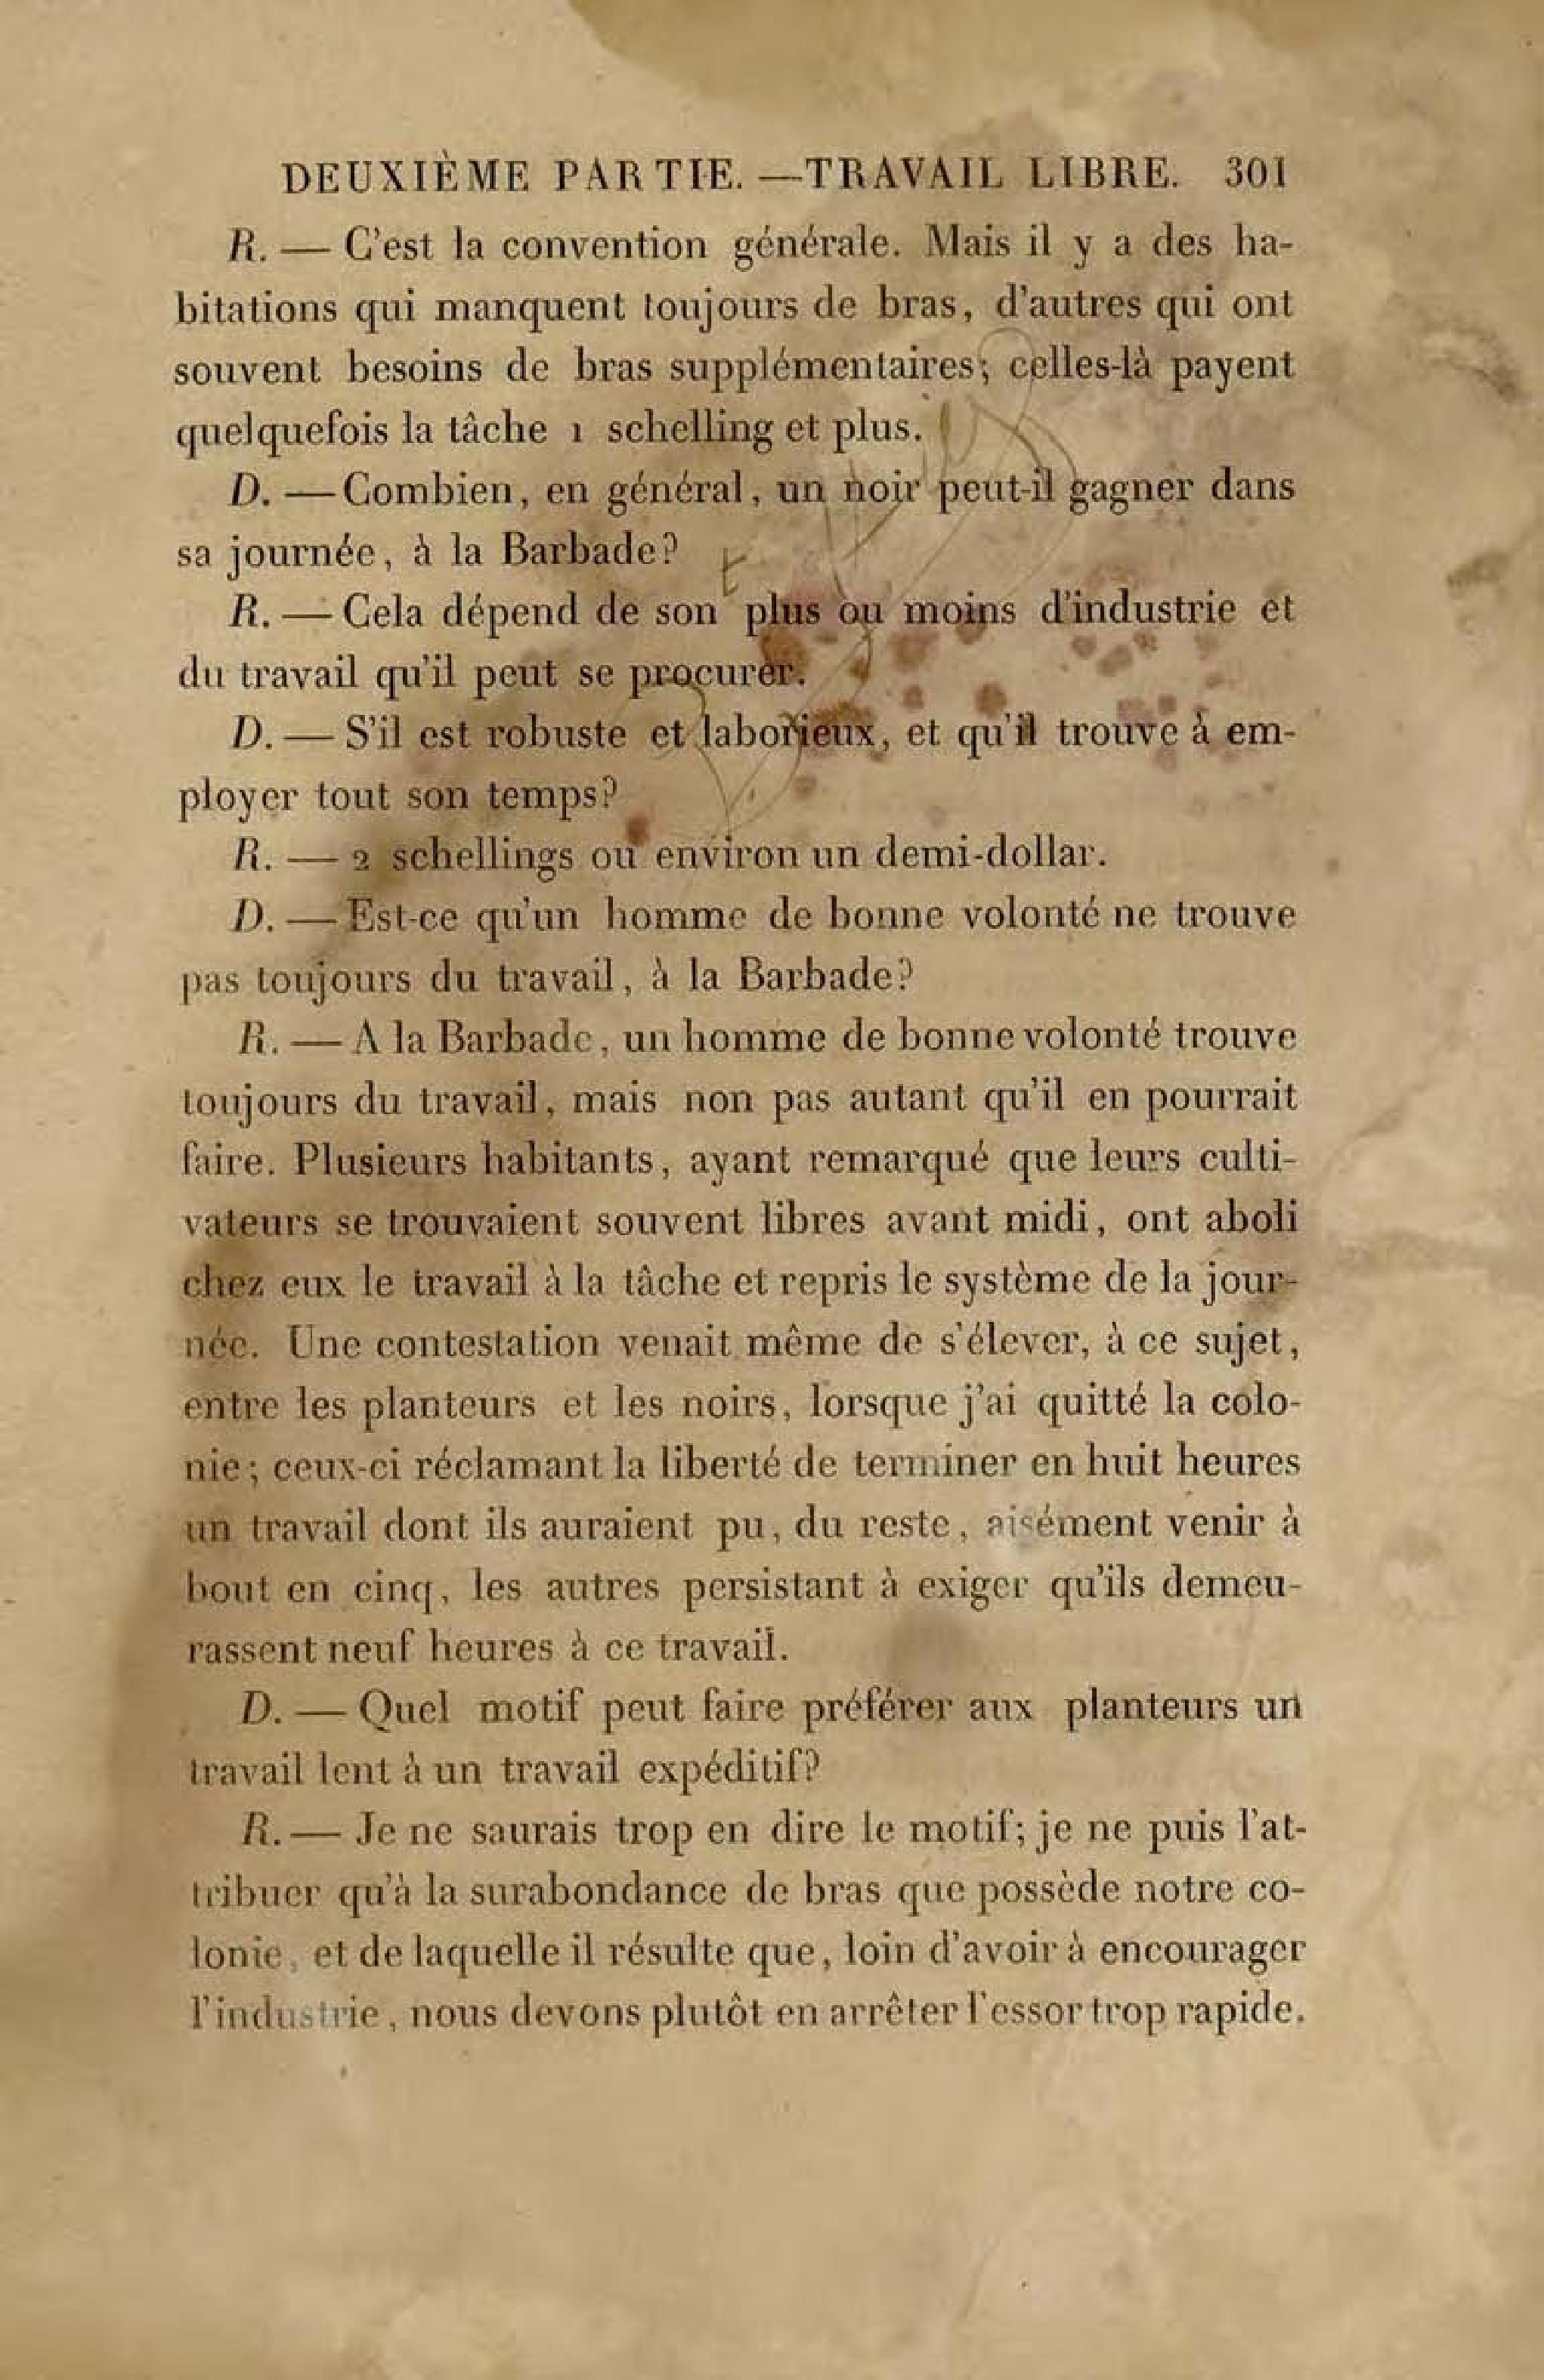 DEUXIÈME PARTIE. — TRAVAIL LIBRE. 301
R. — C'est la convention générale. Mais il y a des ha-
bitations qui manquent toujours de bras, d'autres qui ont
souvent besoins de bras supplémentaires; celles-là payent
quelquefois la tâche 1 schelling et plus.
D. — Combien, en général, un noir peut-il gagner dans
sa journée, à la Barbade?
R. — Cela dépend de son plus ou moins d'industrie et
du travail qu'il peut se procurer.
D. — S'il est robuste et laborieux, et qu'il trouve à em-
ployer tout son temps?
R. — 2 schellings ou environ un demi-dollar.
D. — Est-ce qu'un homme de bonne volonté ne trouve
pas toujours du travail, à la Barbade?
R. — A la Barbade, un homme de bonne volonté trouve
toujours du travail, mais non pas autant qu'il en pourrait
faire. Plusieurs habitants, ayant remarqué que leurs culti-
vateurs se trouvaient souvent libres avant midi, ont aboli
chez eux le travail à la tâche et repris le système de la jour-
née. Une contestation venait même de s'élever, à ce sujet,
entre les planteurs et les noirs, lorsque j'ai quitté la colo-
nie; ceux-ci réclamant la liberté de terminer en huit heures
un travail dont ils auraient pu, du reste, aisément venir à
bout en cinq, les autres persistant à exiger qu'ils demeu-
rassent neuf heures à ce travail.
D. — Quel motif peut faire préférer aux planteurs un
travail lent à un travail expéditif?
R. — Je ne saurais trop en dire le motif; je ne puis l'at-
tribuer qu'à la surabondance de bras que possède notre co-
lonie, et de laquelle il résulte que, loin d'avoir à encourager
l'industrie, nous devons plutôt en arrêter l'essor trop rapide.